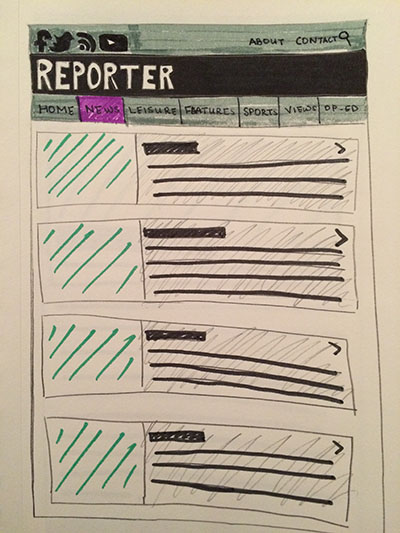 ABOUT CONTACT
REPORTER
HOME NEWS LEISURE FEATURES SPORTS VIEWS OP-ED